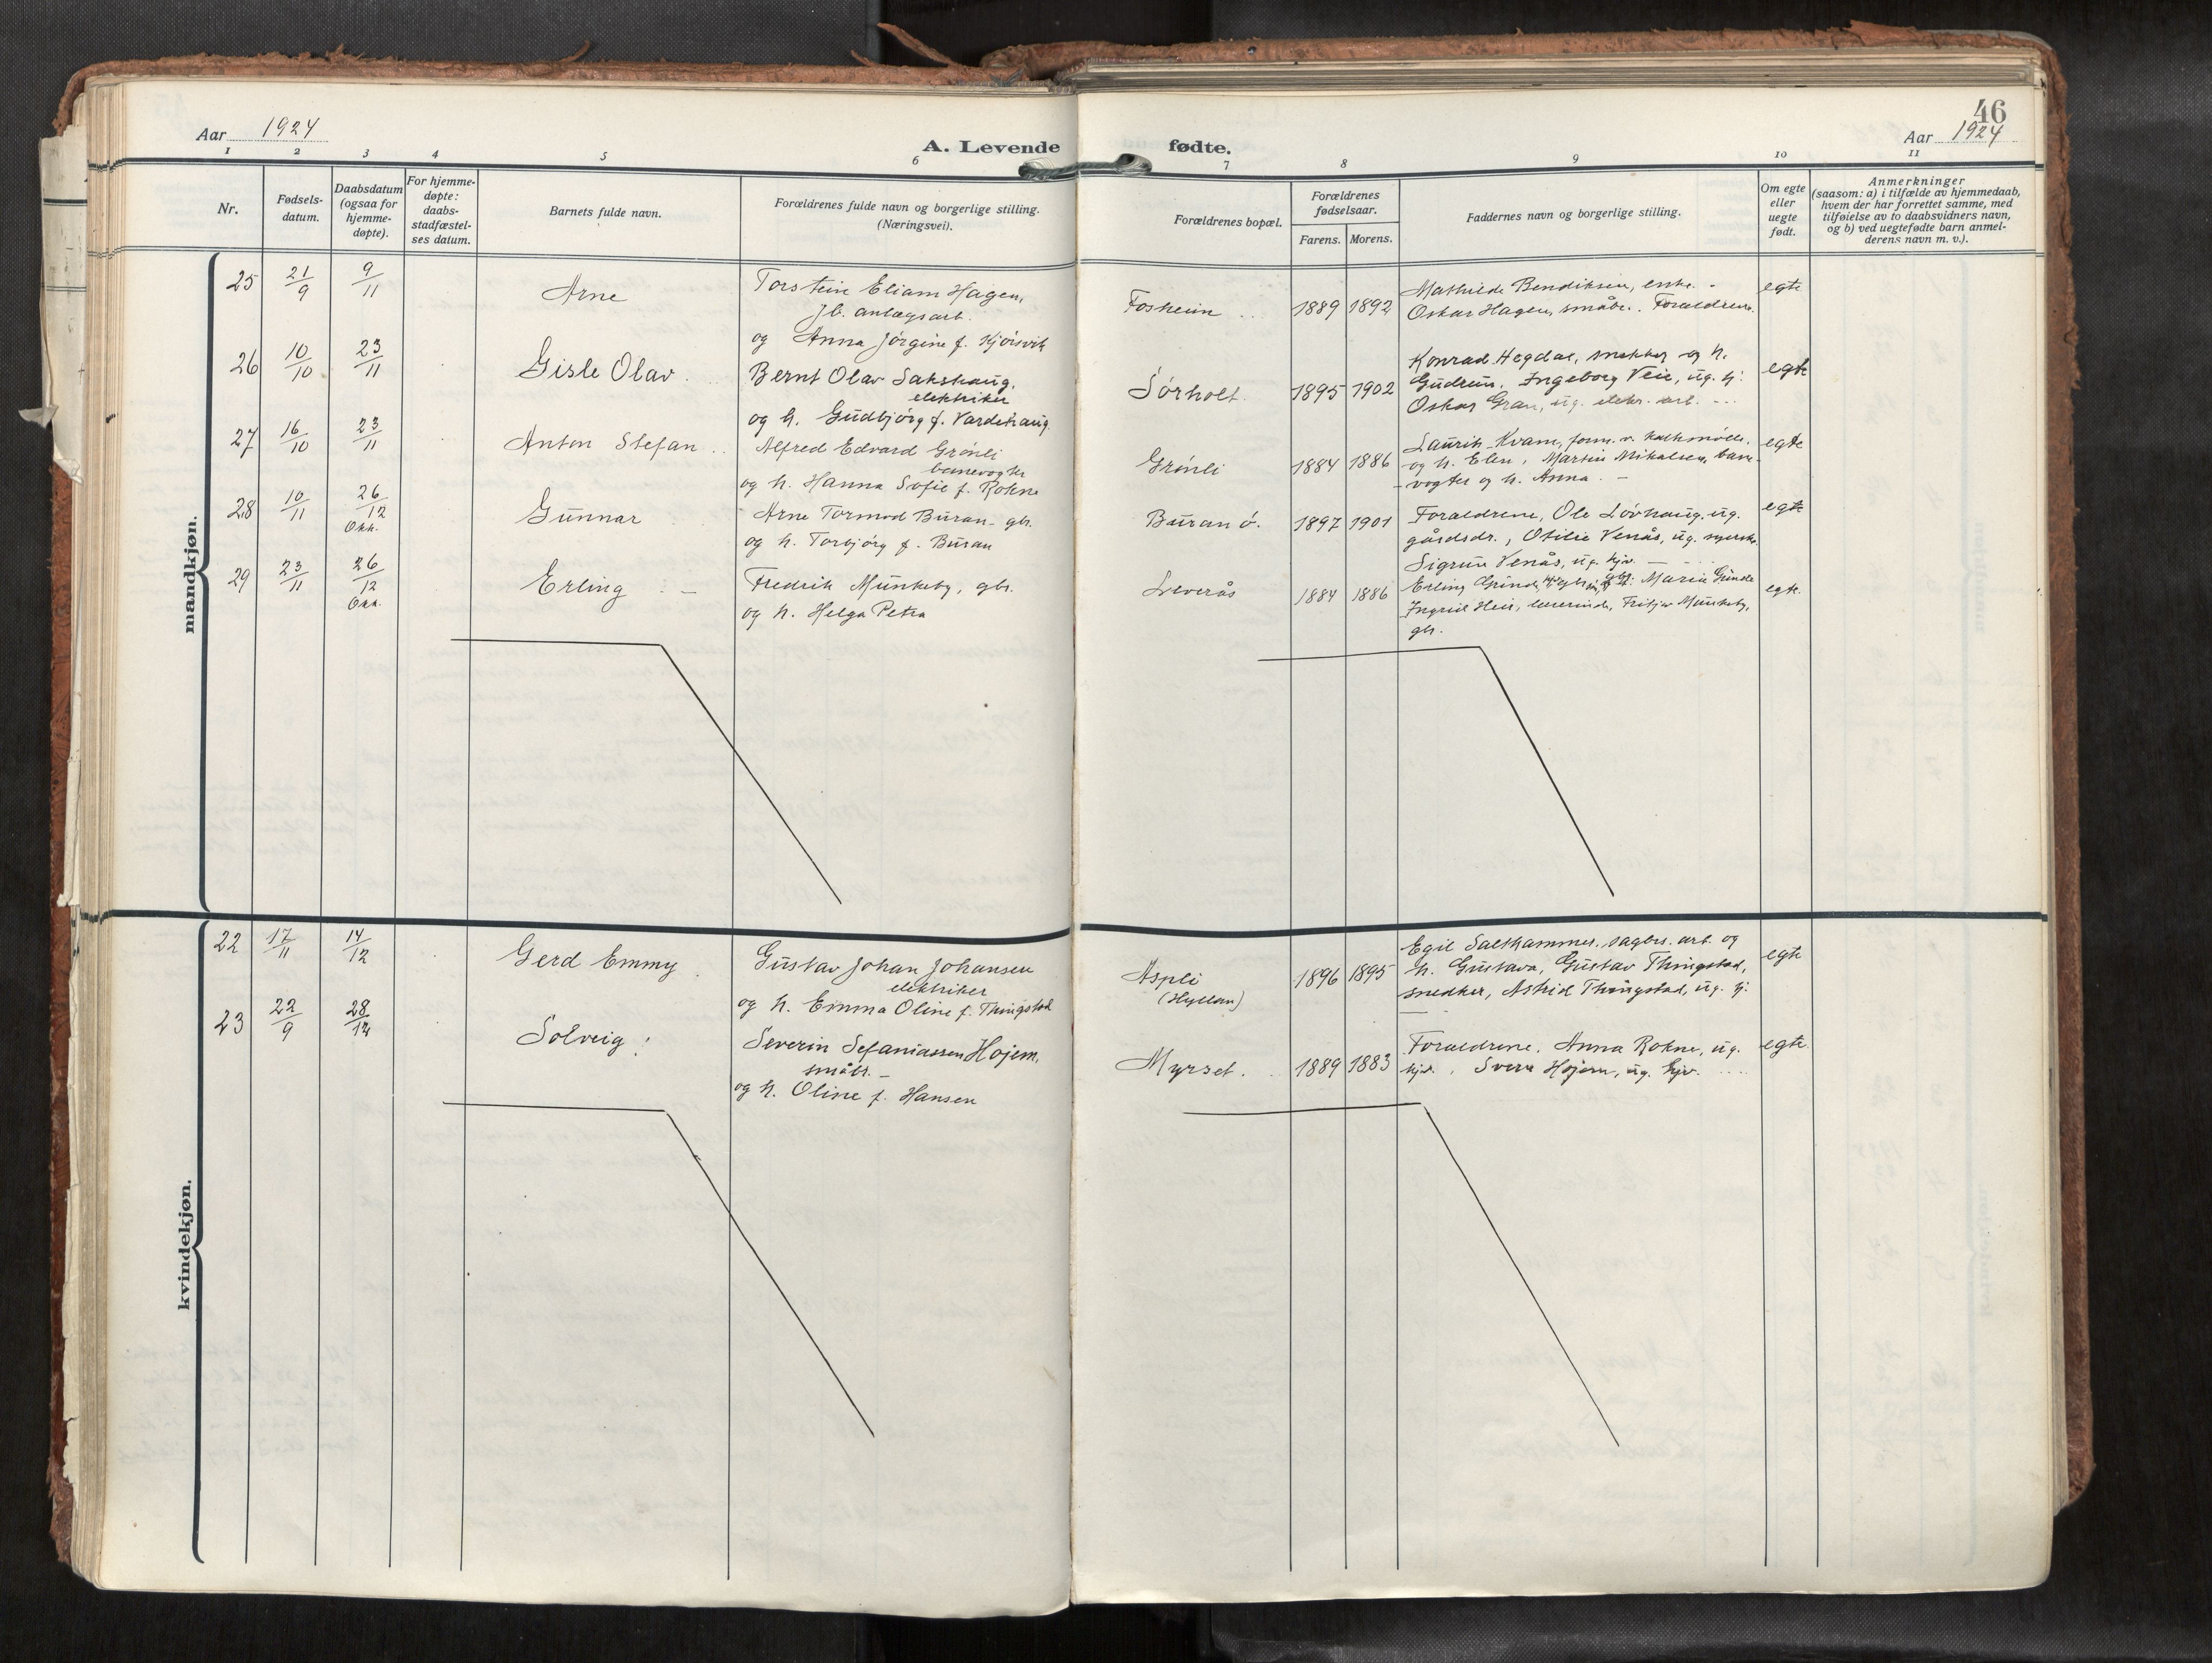 46
Aar 1924
A. Levende fødte.
Aar 1924
1 2 3 4 5 6 7 8 9 10 11
Nr.
Fødsels-
datum.
Daabsdatum
(ogsaa for
hjemme-
døpte).
For hjemme-
døpte:
daabs-
stadfæstel-
ses datum.
Barnets fulde navn.
Forældrenes fulde navn og borgerlige stilling.
(Næringsvei).
Forældrenes bopæl.
Forældrenes
fødselsaar.
Farens. Morens.
Faddernes navn og borgerlige stilling.
Om egte
eller
uegte
født.
Anmerkninger
(saasom: a) i tilfælde av hjemmedaab,
hvem der har forrettet samme, med
tilføielse av to daabsvidners navn,
og b) ved uegtefødte barn anmel-
derens navn m. v.).
mandkjøn.
25 21/9 9/11 Arne
Torstein Eliam Hagen,
jb. anlægsarb.
og Anna Jørgine f. Kjörsvik
Fosheim 1889 1892
Mathilde Bendiksen, enke. -
Oskar Hagen, småbr. Forældrene.
egte
26 10/10 23/11 Gisle Olav
Bernt Olav Sakshaug,
elektriker
og h. Gudbjörg f. Vardehaug
Sörholt. 1895 1902
Konrad Hegdal, snekker og h.
Gudrun, Ingeborg Veie, ug. hj.
Oskar Gran, ug. elektr. arb.
egte
27 16/10 23/11 Anton Stefan
Alfred Edvard Grönli
banevogter
og h. Hanna Sofie f. Rokne
Grönli 1884 1886
Laurits Kvam, form. v. kalkmölle,
og h. Elen, Martin Mikalsen, bane-
vogter og h. Anna. -
egte
28 10/11 26/12 Okk. Gunnar
Arne Tormod Buran - gbr.
og h. Torbjörg f. Buran
Buran ö. 1897 1901
Forældrene, Ole Lövhaug, ug.
gårdsdr., Otilie Venås, ug. syerske.
Sigrun Venås, ug. hjv.
egte
29 23/11 26/12 Okk. Erling
Fredrik Munkeby, gbr.
og h. Helga Petra
Leverås 1884 1886
Erling Grinde, Marie Grinde
Ingrid Heir, lærerinde, Fritjov Munkeby,
gbr.
egte.
kvindekjøn.
22 17/11 14/12 Gerd Emmy
Gustav Johan Johansen
elektriker
og h. Emma Oline f. Thingstad
Aspli
(Hyllan)
1896 1895
Egil Salthammer, sagbr. arb. og
h. Gustava, Gustav Thingstad,
snedker, Astrid Thingstad, ug. hj.
egte
23 22/9 28/12 Solveig
Severin Sefaniassen Hojem,
småbr. -
og h. Oline f. Hansen
Myrset. 1889 1883
Forældrene, Anna Rokne, ug.
hjv., Sverre Hojem, ug. hjv.
egte.